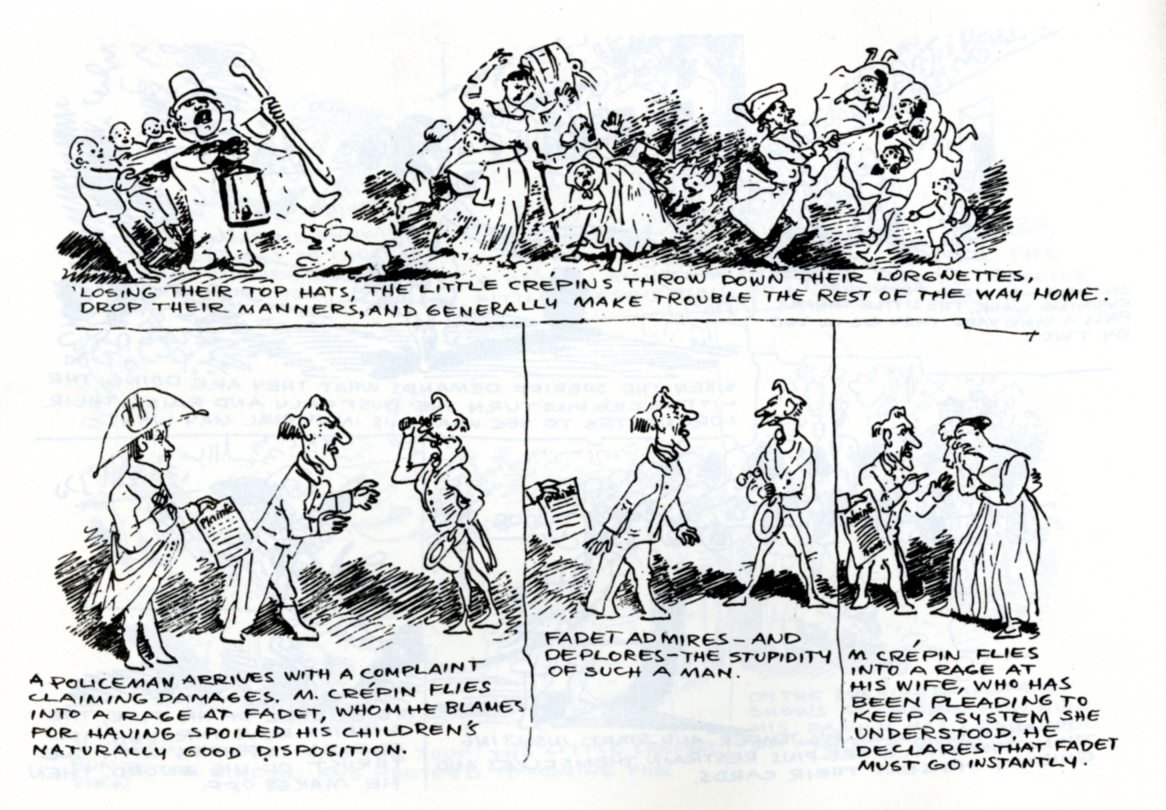 'LOSING THEIR TOP HATS, THE LITTLE CREPINS THROW DOWN THEIR LORGNETTES,
DROP THEIR MANNERS, AND GENERALLY MAKE TROUBLE THE REST OF THE WAY HOME.
Plainte
A POLICEMAN ARRIVES WITH A COMPLAINT
CLAIMING DAMAGES. M. CRÉPIN FLIES
INTO A RAGE AT FADET, WHOM HE BLAMES
FOR HAVING SPOILED HIS CHILDREN'S
NATURALLY GOOD DISPOSITION.
plainte
FADET ADMIRES – AND
DEPLORES – THE STUPIDITY
OF SUCH A MAN.
plainte
M. CRÉPIN FLIES
INTO A RAGE AT
HIS WIFE, WHO HAS
BEEN PLEADING TO
KEEP A SYSTEM SHE
UNDERSTOOD. HE
DECLARES THAT FADET
MUST GO INSTANTLY.